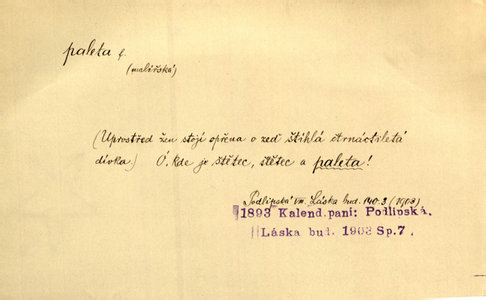 paleta f.
(malířská)
(Uprostřed žen stojí opřena o zeď štíhlá čtrnáctiletá
dívka) Ó, kde je štětec, štětec a paleta!
Podlipská VIII. Láska bud. 140.3 (1903)
1893 Kalend. paní: Podlipská.
Láska bud. 1903 Sp.7.